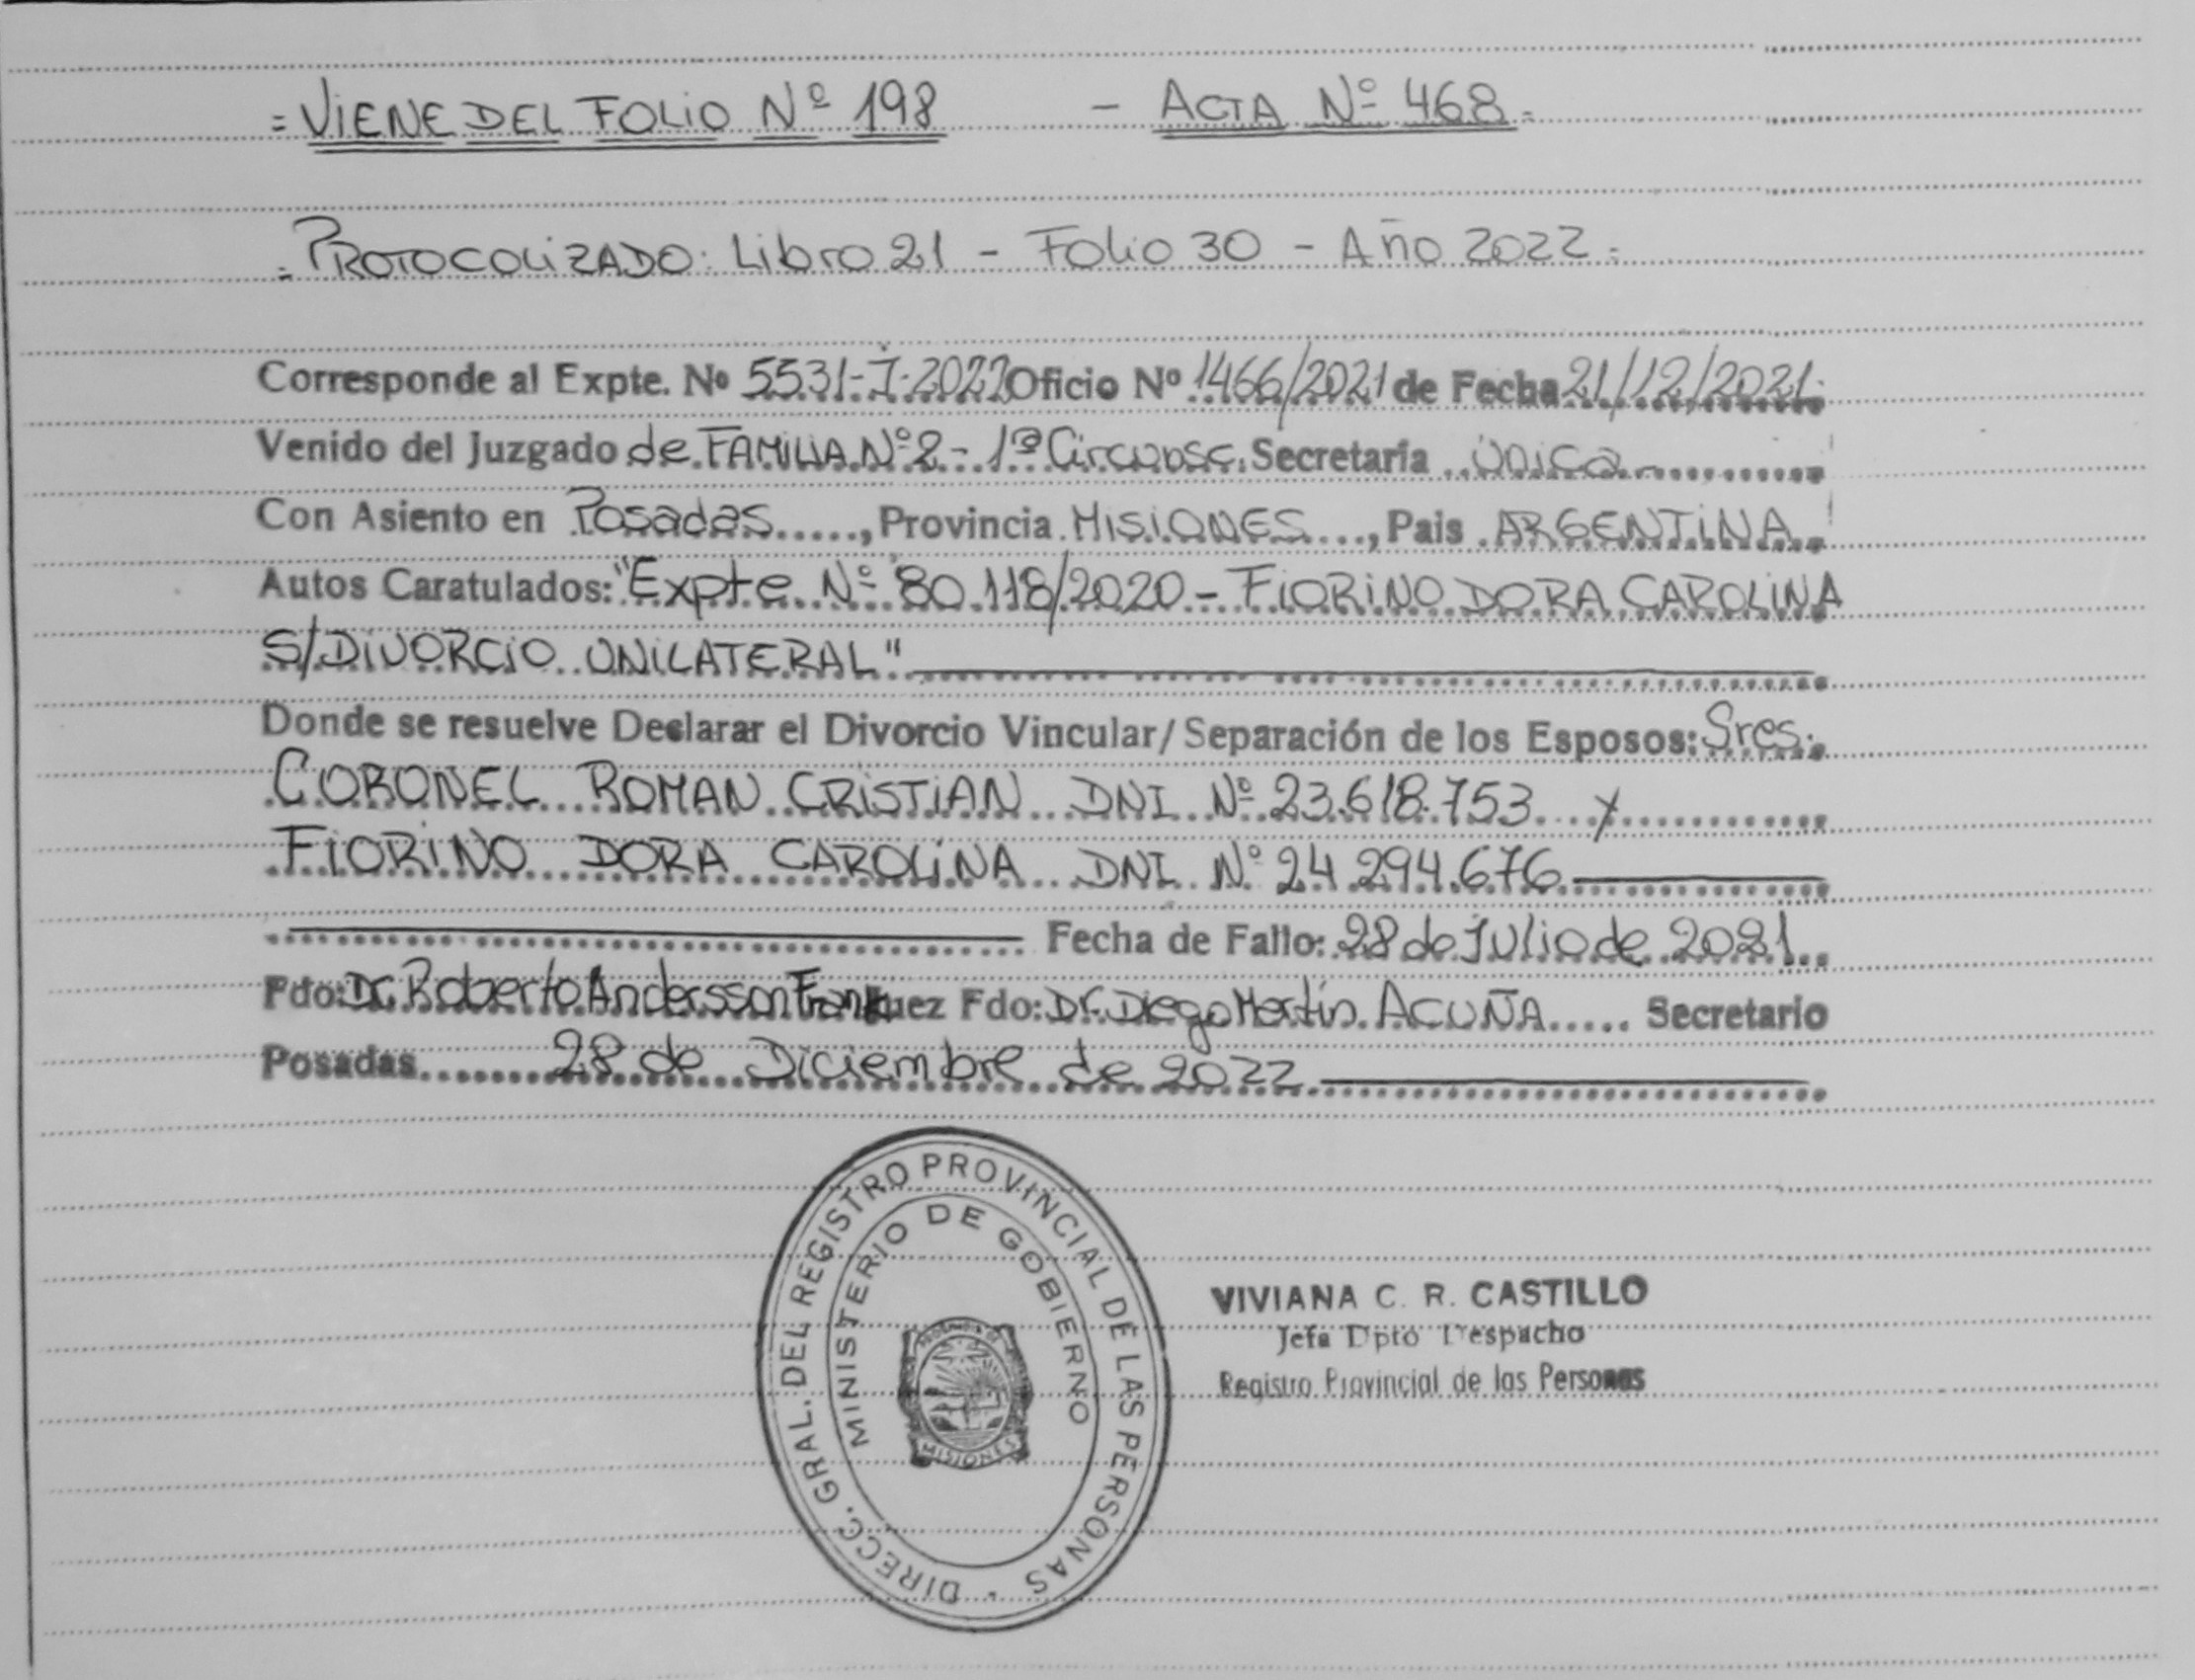 = VIENE DEL FOLIO Nº 198 - ACTA Nº 468 =
= PROTOCOLIZADO: Libro 21 - Folio 30 - Año 2022 =
Corresponde al Expte. Nº 5531-I-2022 Oficio Nº 1466/2021 de Fecha 21/12/2021.
Venido del Juzgado de FAMILIA Nº 2 - 1ª Circunsc. Secretaría única
Con Asiento en Posadas....., Provincia MISIONES...., Pais ARGENTINA.
Autos Caratulados: "Expte Nº 80.118/2020 - FIORINO DORA CAROLINA
S/DIVORCIO UNILATERAL"
Donde se resuelve Declarar el Divorcio Vincular/Separación de los Esposos: Sres.
CORONEL ROMAN CRISTIAN DNI Nº 23.618.753 y
FIORINO DORA CAROLINA DNI Nº 24.294.676
Fecha de Fallo: 28 de Julio de 2021.
Fdo: Dr. Roberto Andersson Frank Juez Fdo: Dr. Diego Martín ACUÑA..... Secretario
Posadas 28 de Diciembre de 2022
DIRECC. GRAL. DEL REGISTRO PROVINCIAL DE LAS PERSONAS -
MINISTERIO DE GOBIERNO
PROVINCIA DE
MISIONES
VIVIANA C. R. CASTILLO
Jefa Dpto Despacho
Registro Provincial de las Personas